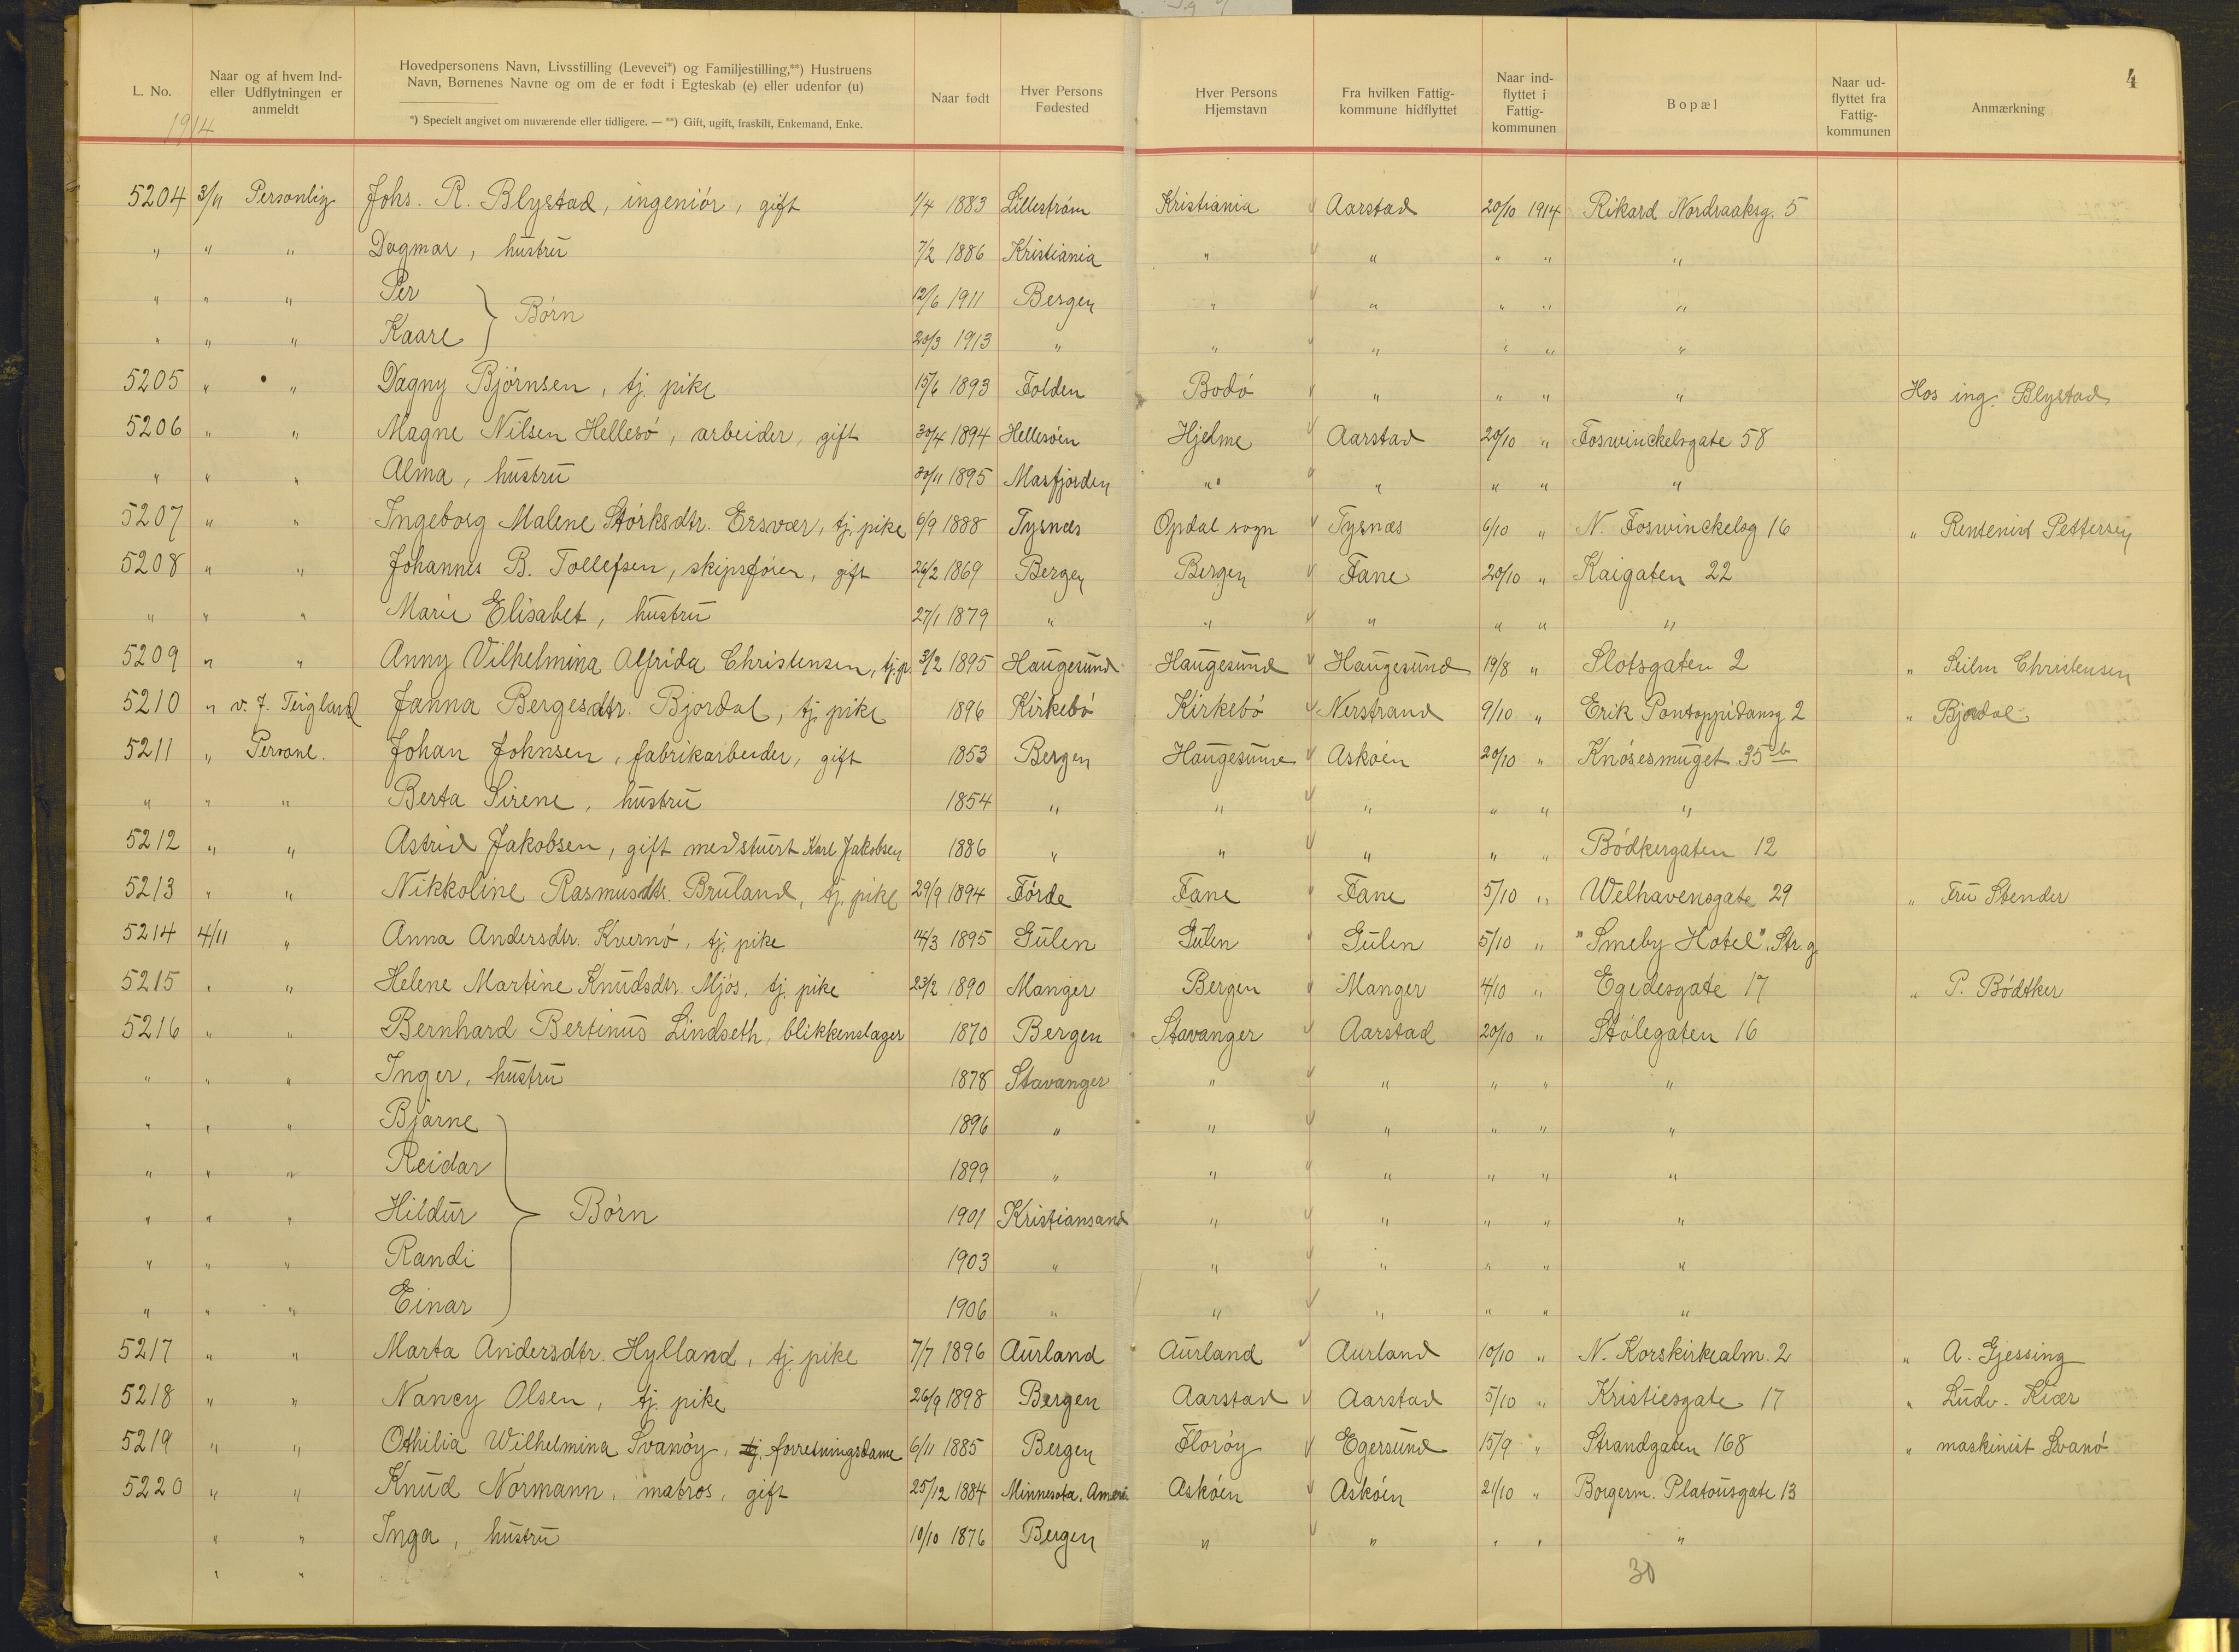 4
L. No.
Naar og af hvem Ind- eller Udflytningen er anmeldt
Hovedpersonens Navn, Livsstilling (Levevei*) og Familjestilling,**) Hustruens Navn, Børnenes Navne og om de er født i Egteskab (e) eller udenfor (u)
*) Specielt angivet om nuværende eller tidligere. — **) Gift, ugift, fraskilt, Enkemand, Enke.
Naar født
Hver Persons Fødested
Hver Persons Hjemstavn
Fra hvilken Fattig- kommune hidflyttet
Naar ind- flyttet i Fattig- kommunen
Bopæl
Naar ud- flyttet fra Fattig- kommunen
Anmærkning
1914
5204 3/11 Personlig Johs. R. Blystad, ingeniór, gift 1/4 1883 Lilleström Kristiania Aarstad 20/10 1914 Rikard Nordraaksg. 5
" " " Dagmar, hustru 7/2 1886 Kristiania " " " " "
" " " Per } Börn 12/6 1911 Bergen " " " " "
" " " Kaare 20/3 1913 " " " " " "
5205 " " Dagny Björnsen, tj. pike 15/6 1893 Folden Bodó " " " " Hos ing. Blystad
5206 " " Magne Nilsen Hellesó, arbeider, gift 30/4 1894 Hellesóen Hjelme Aarstad 20/10 " Foswinckelsgate 58
" " " Alma, hustru 30/11 1895 Masfjorden " " " " "
5207 " " Ingeborg Malene Störksdtr. Ersvær, tj. pike 6/9 1888 Tysnæs Opdal sogn Tysnæs 6/10 " N. Foswinckelsg 16 " Rentenist Pettersen
5208 " " Johannes B. Tollefsen, skipsförer, gift 26/2 1869 Bergen Bergen Fane 20/10 " Kaigaten 22
" " " Marie Elisabet, hustru 27/1 1879 " " " " " "
5209 " " Anny Vilhelmina Alfrida Christensen, tj. p. 3/2 1895 Haugesund Haugesund Haugesund 19/8 " Slotsgaten 2 " Seilm Christensen
5210 " v. J. Teigland Janna Bergesdtr. Bjordal, tj. pike 1896 Kirkebó Kirkebó Nerstrand 9/10 " Erik Pontoppidansg 2 " Bjordal
5211 " Personl. Johan Johnsen, fabrikarbeider, gift 1853 Bergen Haugesund Askóen 20/10 " Knósesmuget 35 b
" " " Berta Sirene, hustru 1854 " " " " " "
5212 " " Astrid Jakobsen, gift med stuert Karl Jakobsen 1886 " " " " " Bódkergaten 12
5213 " " Nikkoline Rasmusdtr. Bruland, tj. pike 29/9 1894 Fórde Fane Fane 5/10 " Welhavensgate 29 " Fru Stender
5214 4/11 " Anna Andersdtr. Kvernó, tj. pike 14/3 1895 Gulen Gulen Gulen 5/10 " "Smeby Hotel", Str. g.
5215 " " Helene Martine Knudsdtr. Mjós, tj. pike 23/2 1890 Manger Bergen Manger 4/10 " Egedesgate 17 " P. Bódtker
5216 " " Bernhard Bertinus Lindseth, blikkenslager 1870 Bergen Stavanger Aarstad 20/10 " Stólegaten 16
" " " Inger, hustru 1878 Stavanger " " " " "
" " " Bjarne 1896 " " " " " "
" " " Reidar 1899 " " " " " "
" " " Hildur } Börn 1901 Kristiansand " " " " "
" " " Randi 1903 " " " " " "
" " " Einar 1906 " " " " " "
5217 " " Marta Andersdtr. Hylland, tj. pike 7/7 1896 Aurland Aurland Aurland 10/10 " N. Korskirkealm. 2 " A. Gjessing
5218 " " Nancy Olsen, tj. pike 26/9 1898 Bergen Aarstad Aarstad 5/10 " Kristiesgate 17 " Ludv. Kiær
5219 " " Othilia Wilhelmina Svanóy, tj. forretningsdame 6/11 1885 Bergen Floróy Egersund 15/9 " Strandgaten 168 " maskinist Svanó
5220 " " Knud Normann, matros, gift 25/12 1884 Minnesota, Ameri. Askóen Askóen 21/10 " Borgerm. Platousgate 13
" " Inga, hustru 10/10 1876 Bergen " " " " "
" "
30